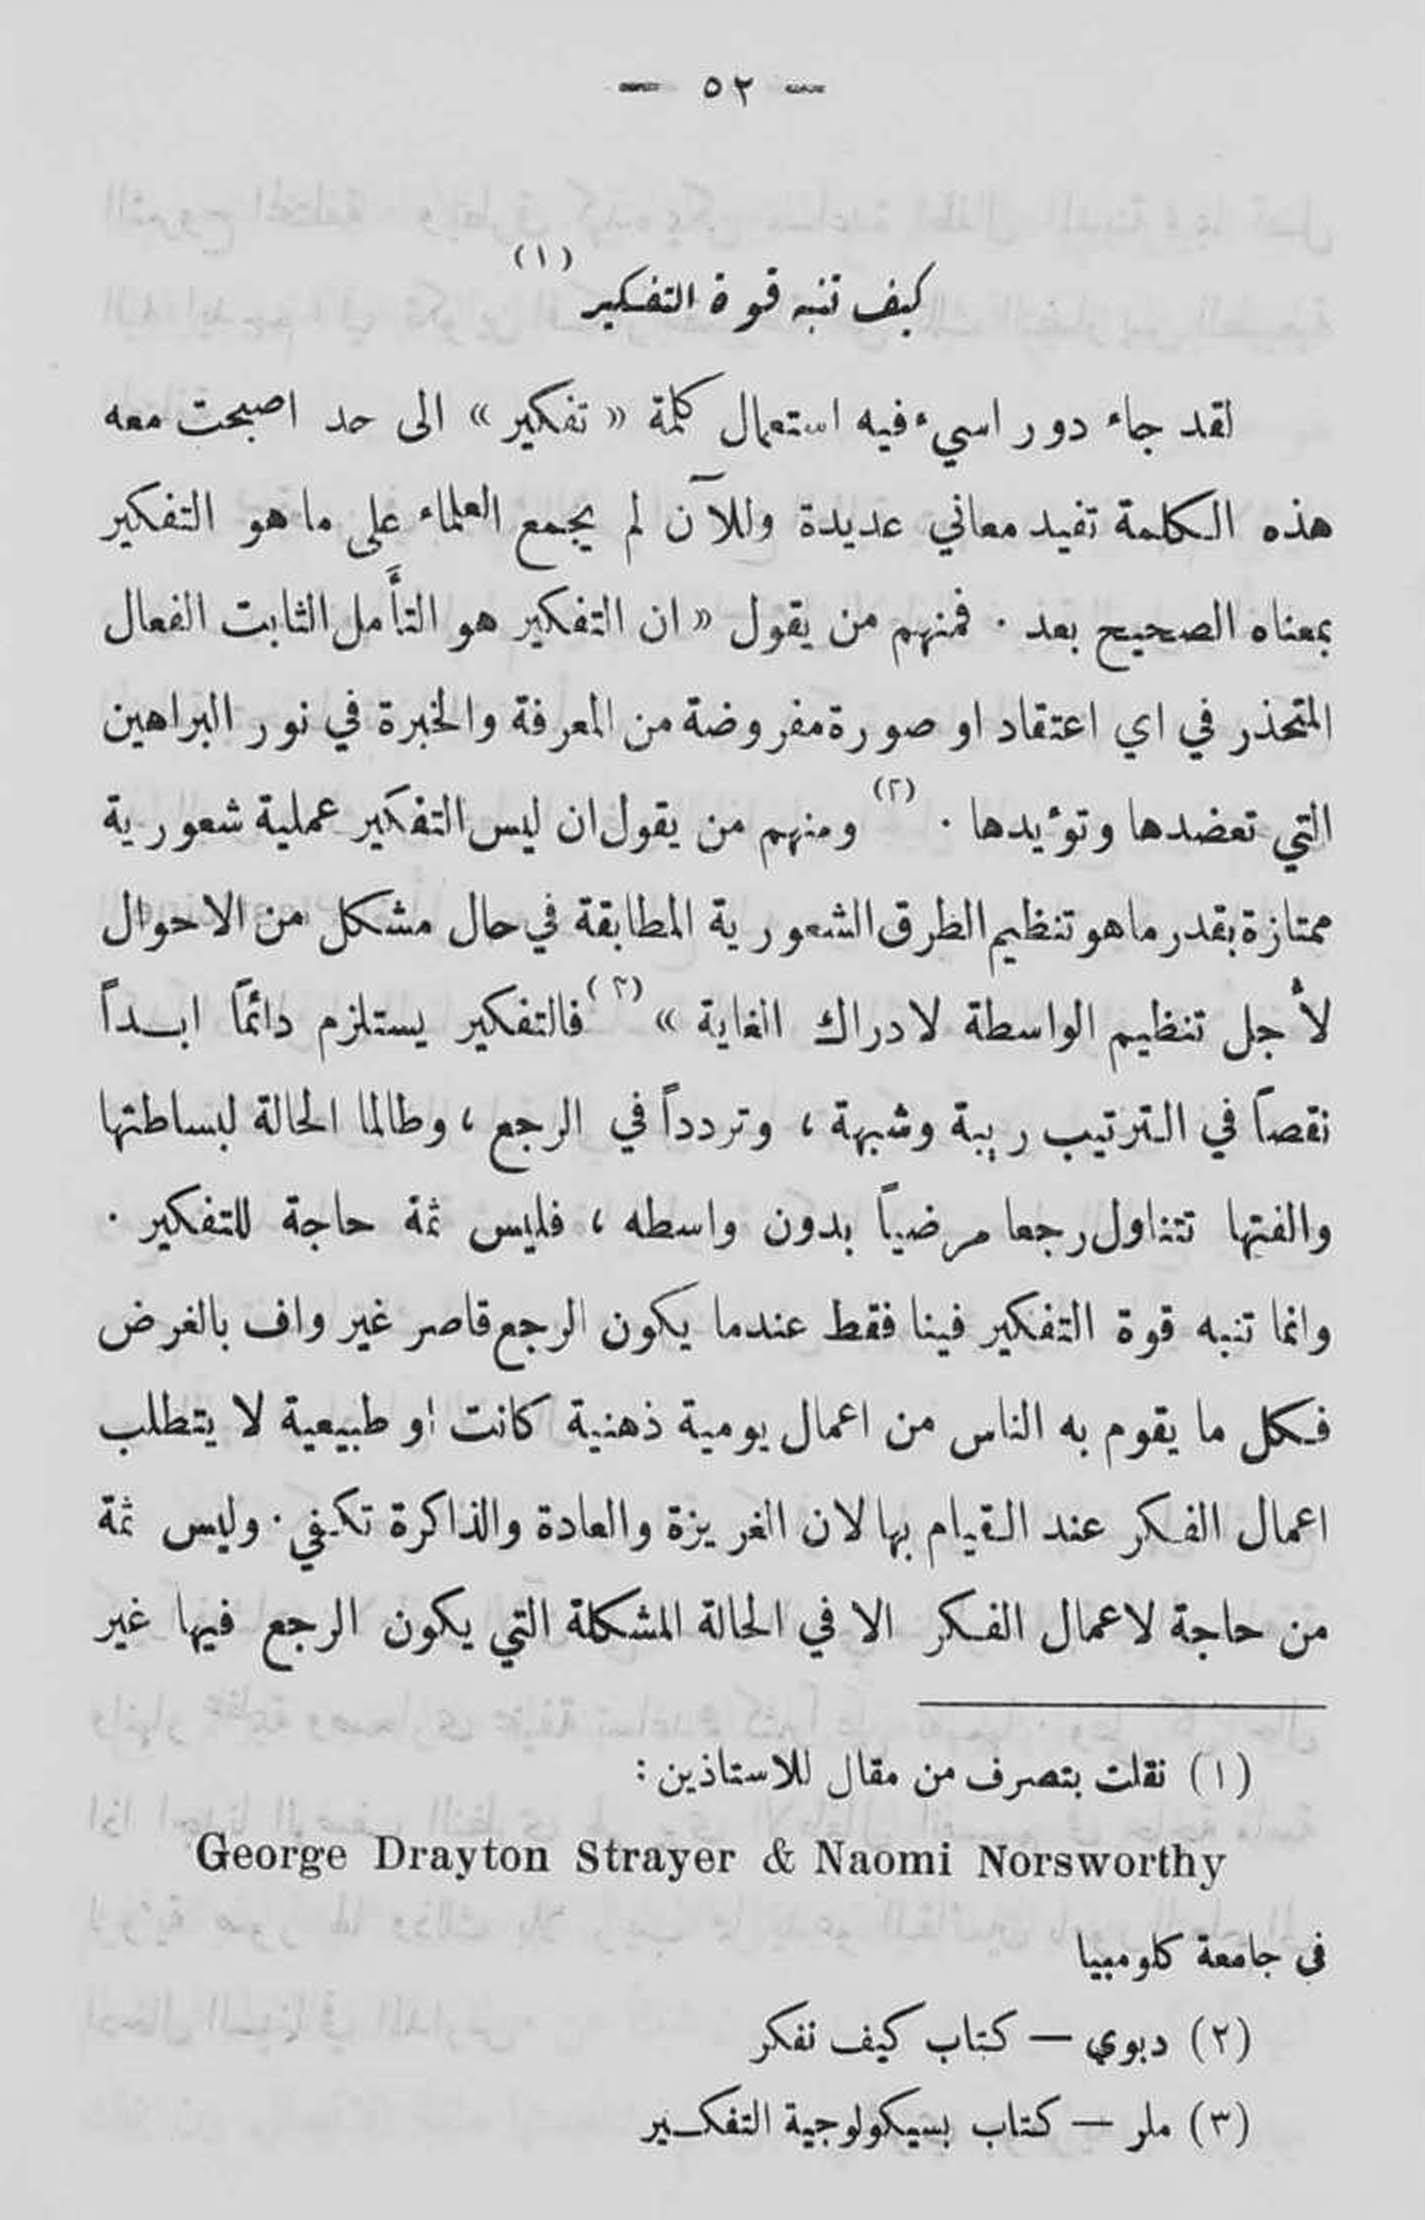 — ٥٢ —
كيف تنبه قوة التفكير (١)
لقد جاء دور اسيء فيه استعمال كلمة « تفكير » الى حد اصبحت معه
هذه الكلمة تفيد معاني عديدة وللآن لم يجمع العلماء على ما هو التفكير
بمعناه الصحيح بعد . فمنهم من يقول « ان التفكير هو التأمل الثابت الفعال
المتحذر في اي اعتقاد او صورة مفروضة من المعرفة والخبرة في نور البراهين
التي تعضدها وتؤيدها . (٢) ومنهم من يقول ان ليس التفكير عملية شعورية
ممتازة بقدر ما هو تنظيم الطرق الشعورية المطابقة في حال مشكل من الاحوال
لأجل تنظيم الواسطة لادراك الغاية » (٣) فالتفكير يستلزم دائماً ابداً
نقصاً في الترتيب ريبة وشبهة ، وتردداً في الرجع ، وطالما الحالة لبساطتها
والفتها تتناول رجعا مرضياً بدون واسطه ، فليس ثمة حاجة للتفكير .
وانما تنبه قوة التفكير فينا فقط عندما يكون الرجع قاصر غير واف بالغرض
فكل ما يقوم به الناس من اعمال يومية ذهنية كانت او طبيعية لا يتطلب
اعمال الفكر عند القيام بها لان الغريزة والعادة والذاكرة تكفي . وليس ثمة
من حاجة لاعمال الفكر الا في الحالة المشكلة التي يكون الرجع فيها غير
(١) نقلت بتصرف من مقال للاستاذين :
George Drayton Strayer & Naomi Norsworthy
في جامعة كلومبيا
(٢) ديوي — كتاب كيف نفكر
(٣) ملر — كتاب بسيكولوجية التفكير